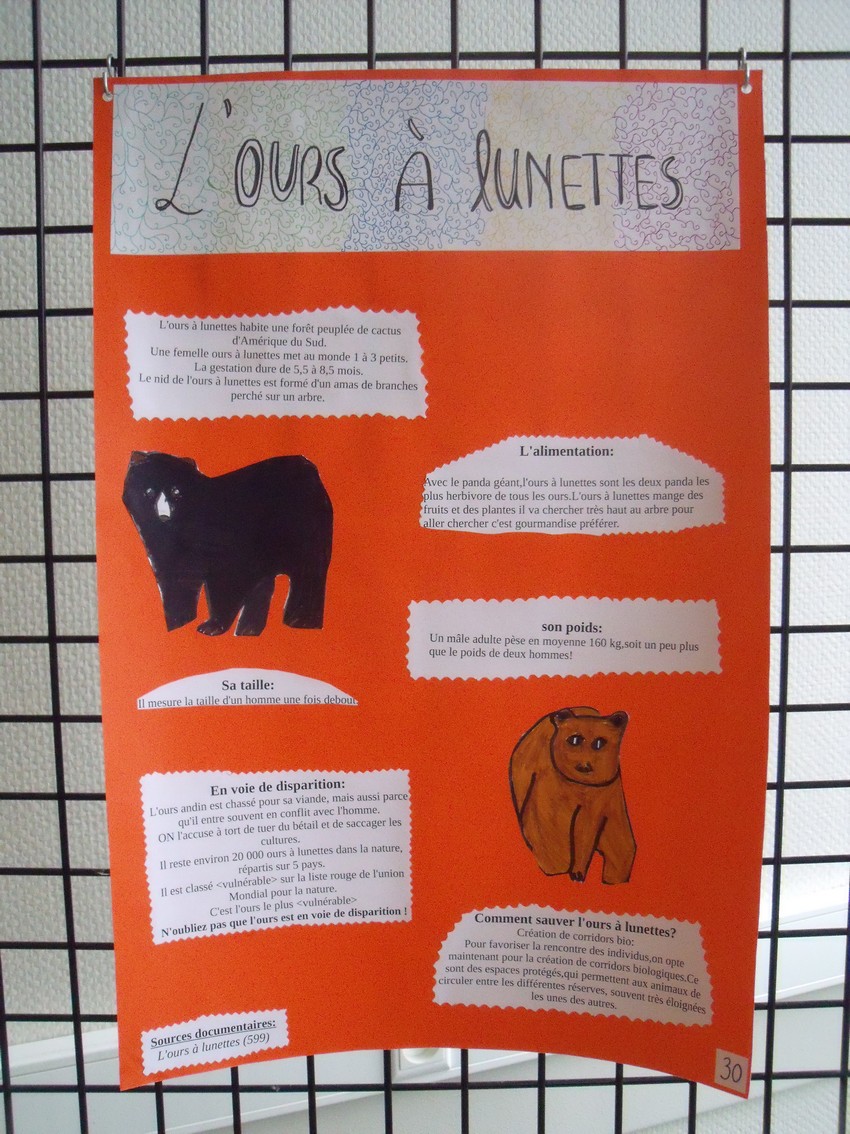 L'OURS À LUNETTES
L'ours à lunettes habite une forêt peuplée de cactus
d'Amérique du Sud.
Une femelle ours à lunettes met au monde 1 à 3 petits.
La gestation dure de 5,5 à 8,5 mois.
Le nid de l'ours à lunettes est formé d'un amas de branches
perché sur un arbre.
L'alimentation:
Avec le panda géant,l'ours à lunettes sont les deux panda les
plus herbivore de tous les ours.L'ours à lunettes mange des
fruits et des plantes il va chercher très haut au arbre pour
aller chercher c'est gourmandise préférer.
son poids:
Un mâle adulte pèse en moyenne 160 kg,soit un peu plus
que le poids de deux hommes!
Sa taille:
Il mesure la taille d'un homme une fois debout
En voie de disparition:
L'ours andin est chassé pour sa viande, mais aussi parce
qu'il entre souvent en conflit avec l'homme.
ON l'accuse à tort de tuer du bétail et de saccager les
cultures.
Il reste environ 20 000 ours à lunettes dans la nature,
répartis sur 5 pays.
Il est classé <vulnérable> sur la liste rouge de l'union
Mondial pour la nature.
C'est l'ours le plus <vulnérable>
N'oubliez pas que l'ours est en voie de disparition !
Comment sauver l'ours à lunettes?
Création de corridors bio:
Pour favoriser la rencontre des individus,on opte
maintenant pour la création de corridors biologiques.Ce
sont des espaces protégés,qui permettent aux animaux de
circuler entre les différentes réserves, souvent très éloignées
les unes des autres.
Sources documentaires:
L'ours à lunettes (599)
30